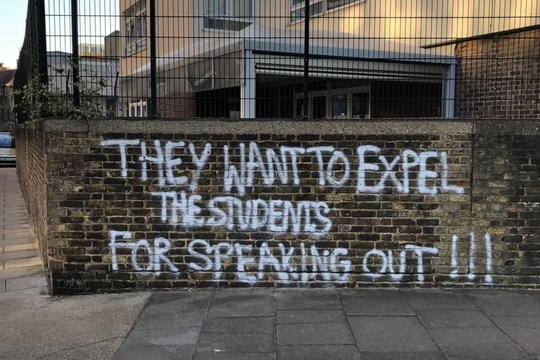 THEY WANT TO EXPEL
THE STUDENTS
FOR SPEAKING OUT !!!